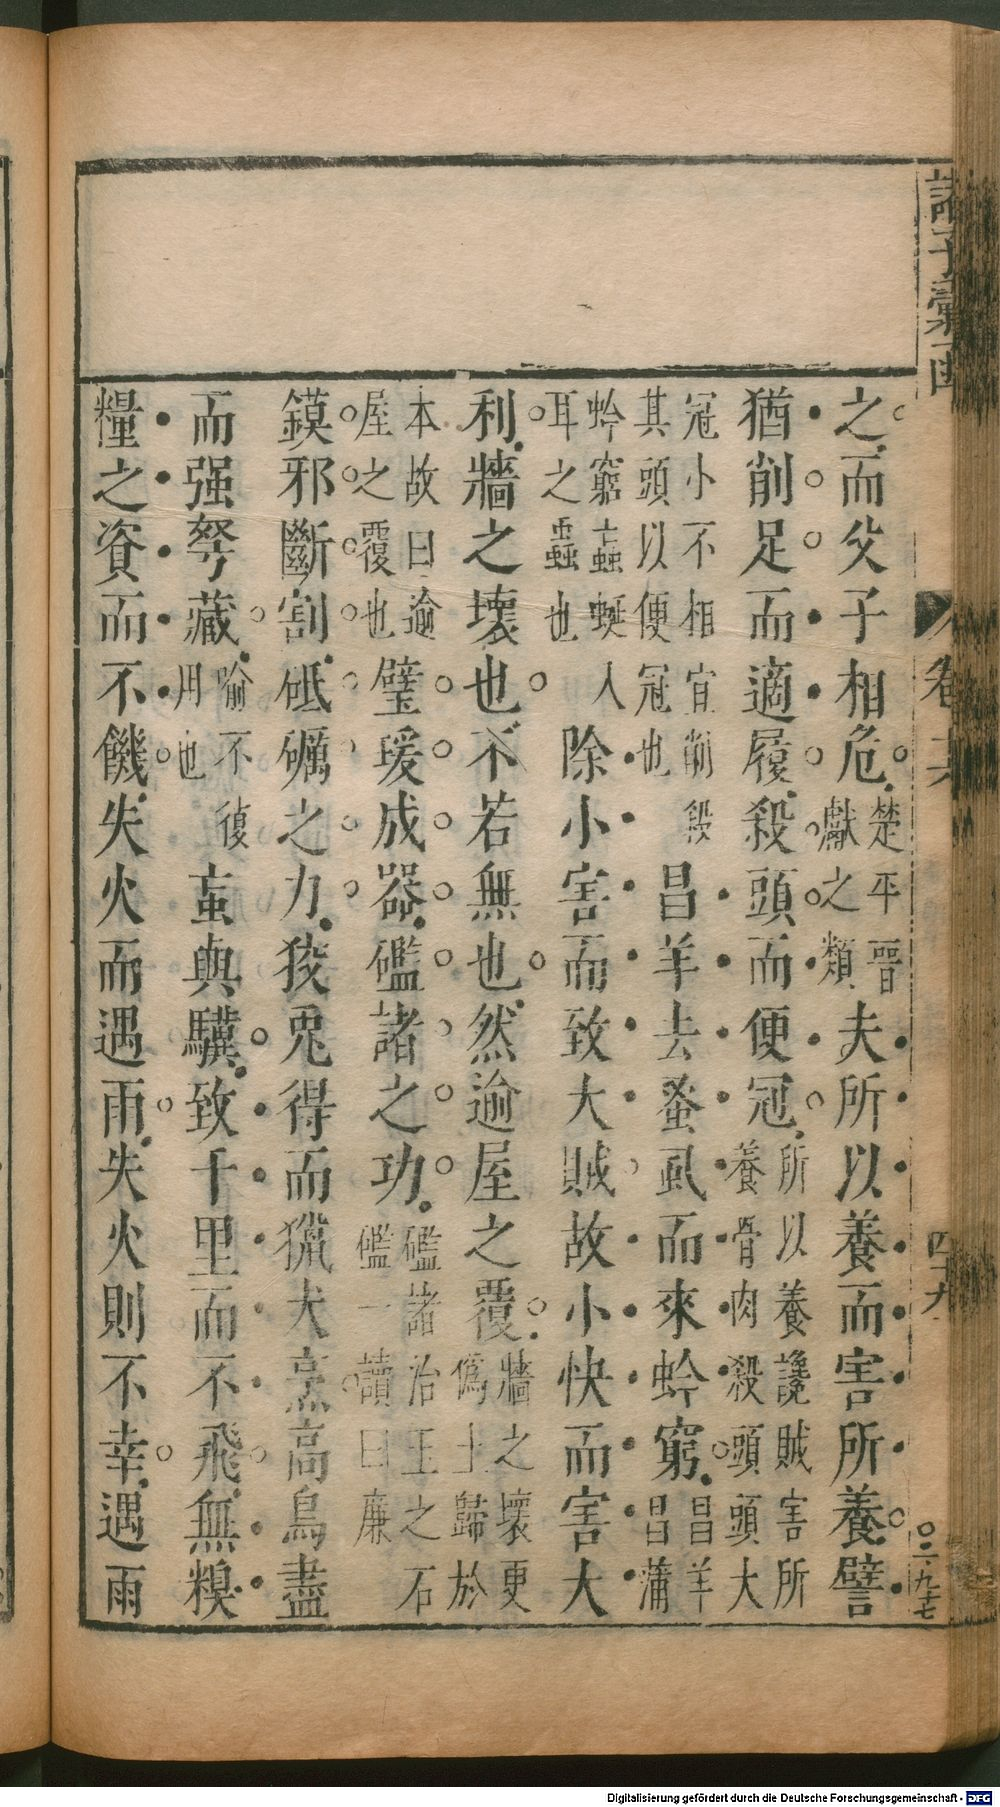 諸子彙函 卷六 四十九
之而父子相危楚平晉獻之類夫所以養而害所養譬
猶削足而適履殺頭而便冠所以養讒賊害所養骨肉殺頭頭大
冠小不相宜削殺其頭以便冠也昌羊去蚤虱而來蚙窮昌羊昌蒲
蚙窮蟲蜒人耳之蟲也除小害而致大賊故小快而害大
利牆之壞也不若無也然逾屋之覆牆之壞更偽土歸於
本故曰逾屋之覆也璧瑗成器礛諸之功礛諸治玉之石礛一讀曰廉
鏌邪斷割砥礪之力狡兎得而獵犬烹高鳥盡
而强弩藏喻不復用也䖟與驥致千里而不飛無糗
糧之資而不饑失火而遇雨失火則不幸遇雨
Digitalisierung gefördert durch die Deutsche Forschungsgemeinschaft - DFG